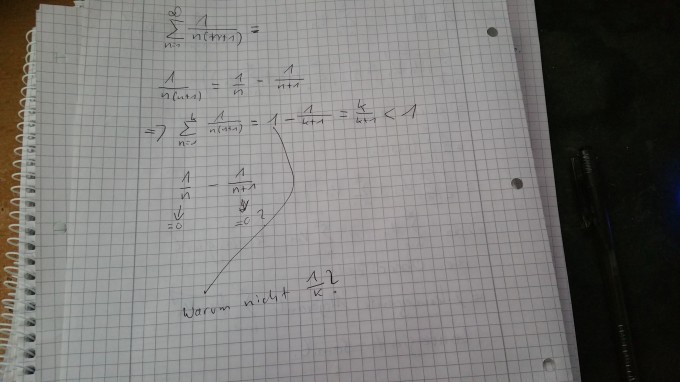 ∞
∑ 1/n(n+1) =
n=1
1/n(n+1) = 1/n - 1/n+1
k
=> ∑ 1/n(n+1) = 1 - 1/k+1 = k/k+1 < 1
n=1
1/n - 1/n+1
=0 =0?
Warum nicht 1/k?